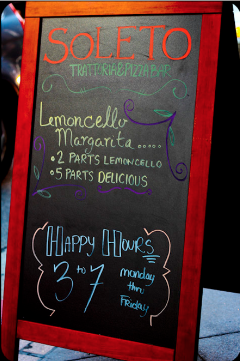 SOLETO
TRATTORIA & PIZZA BAR
Lemoncello
Margarita.....
• 2 PARTS LEMONCELLO
• 5 PARTS DELICIOUS
HAPPY HOURS
3 to 7
monday
thru
Friday